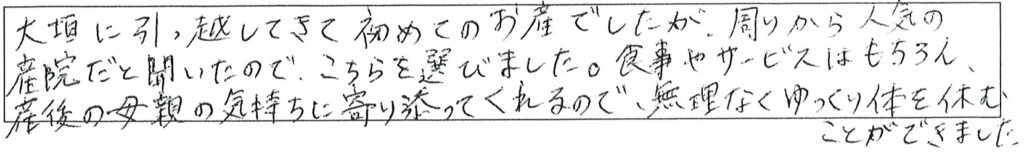 大垣に引っ越してきて初めてのお産でしたが、周りから人気の
産院だと聞いたので、こちらを選びました。食事やサービスはもちろん、
産後の母親の気持ちに寄り添ってくれるので、無理なくゆっくり体を休む
ことができました